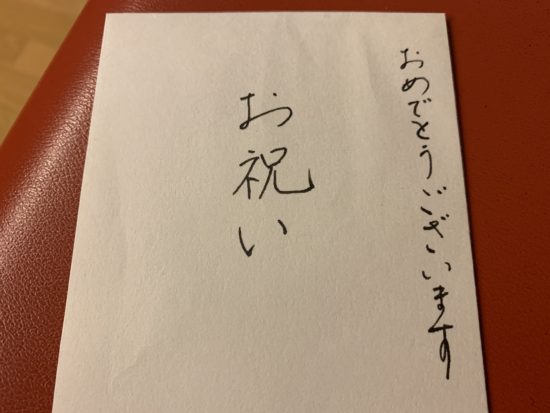 おめでとうございます
お祝い